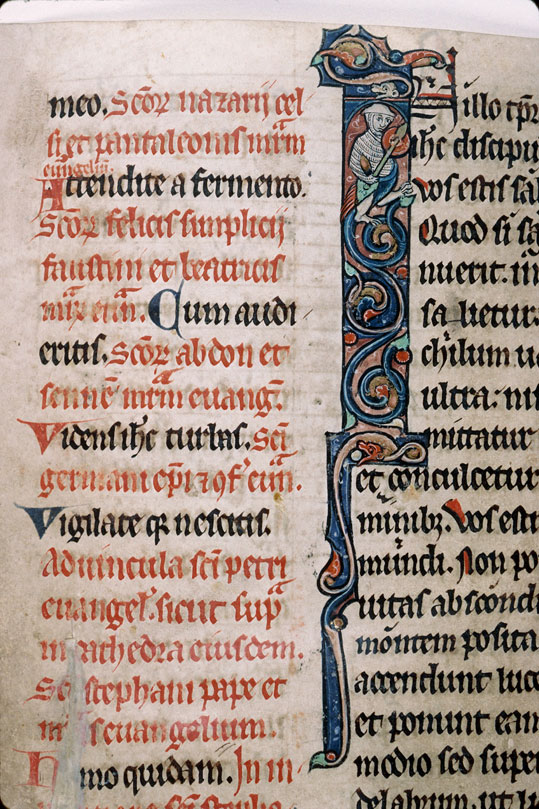 meo. Scōꝝ nazarij cel
si et pantaleonis mr̄m
euangeliū.
Attendite a fermento.
Scōꝝ felicis simplicij
faustini et beatricis
mr̄ꝝ euā. Cum audi
eritis. Scōꝝ abdon et
sennēs mr̄m euang.
Videns ihc turbas. Scī
germani ep̄i ꞇ ꝯf̄ euā.
Vigilate qꝛ nescitis.
Ad uincula sc̄i petri
euangel'. sicut sup̄
in cathedra eiusdem.
Sc̄i stephani pape et
m̄ euangelium.
Homo quidam. In in
I illo tp̄r
ihc discipu
Vos estis sal
Quod si sa
nuerit. in
salietur.
chilum ua
ultra: ni
mittatur
et conculcetur
minibꝫ. Vos esti
mundi. Non po
uitas abscondi
montem posita
accendunt luce
et ponunt eam
modio sed super
delabrum. ut lu